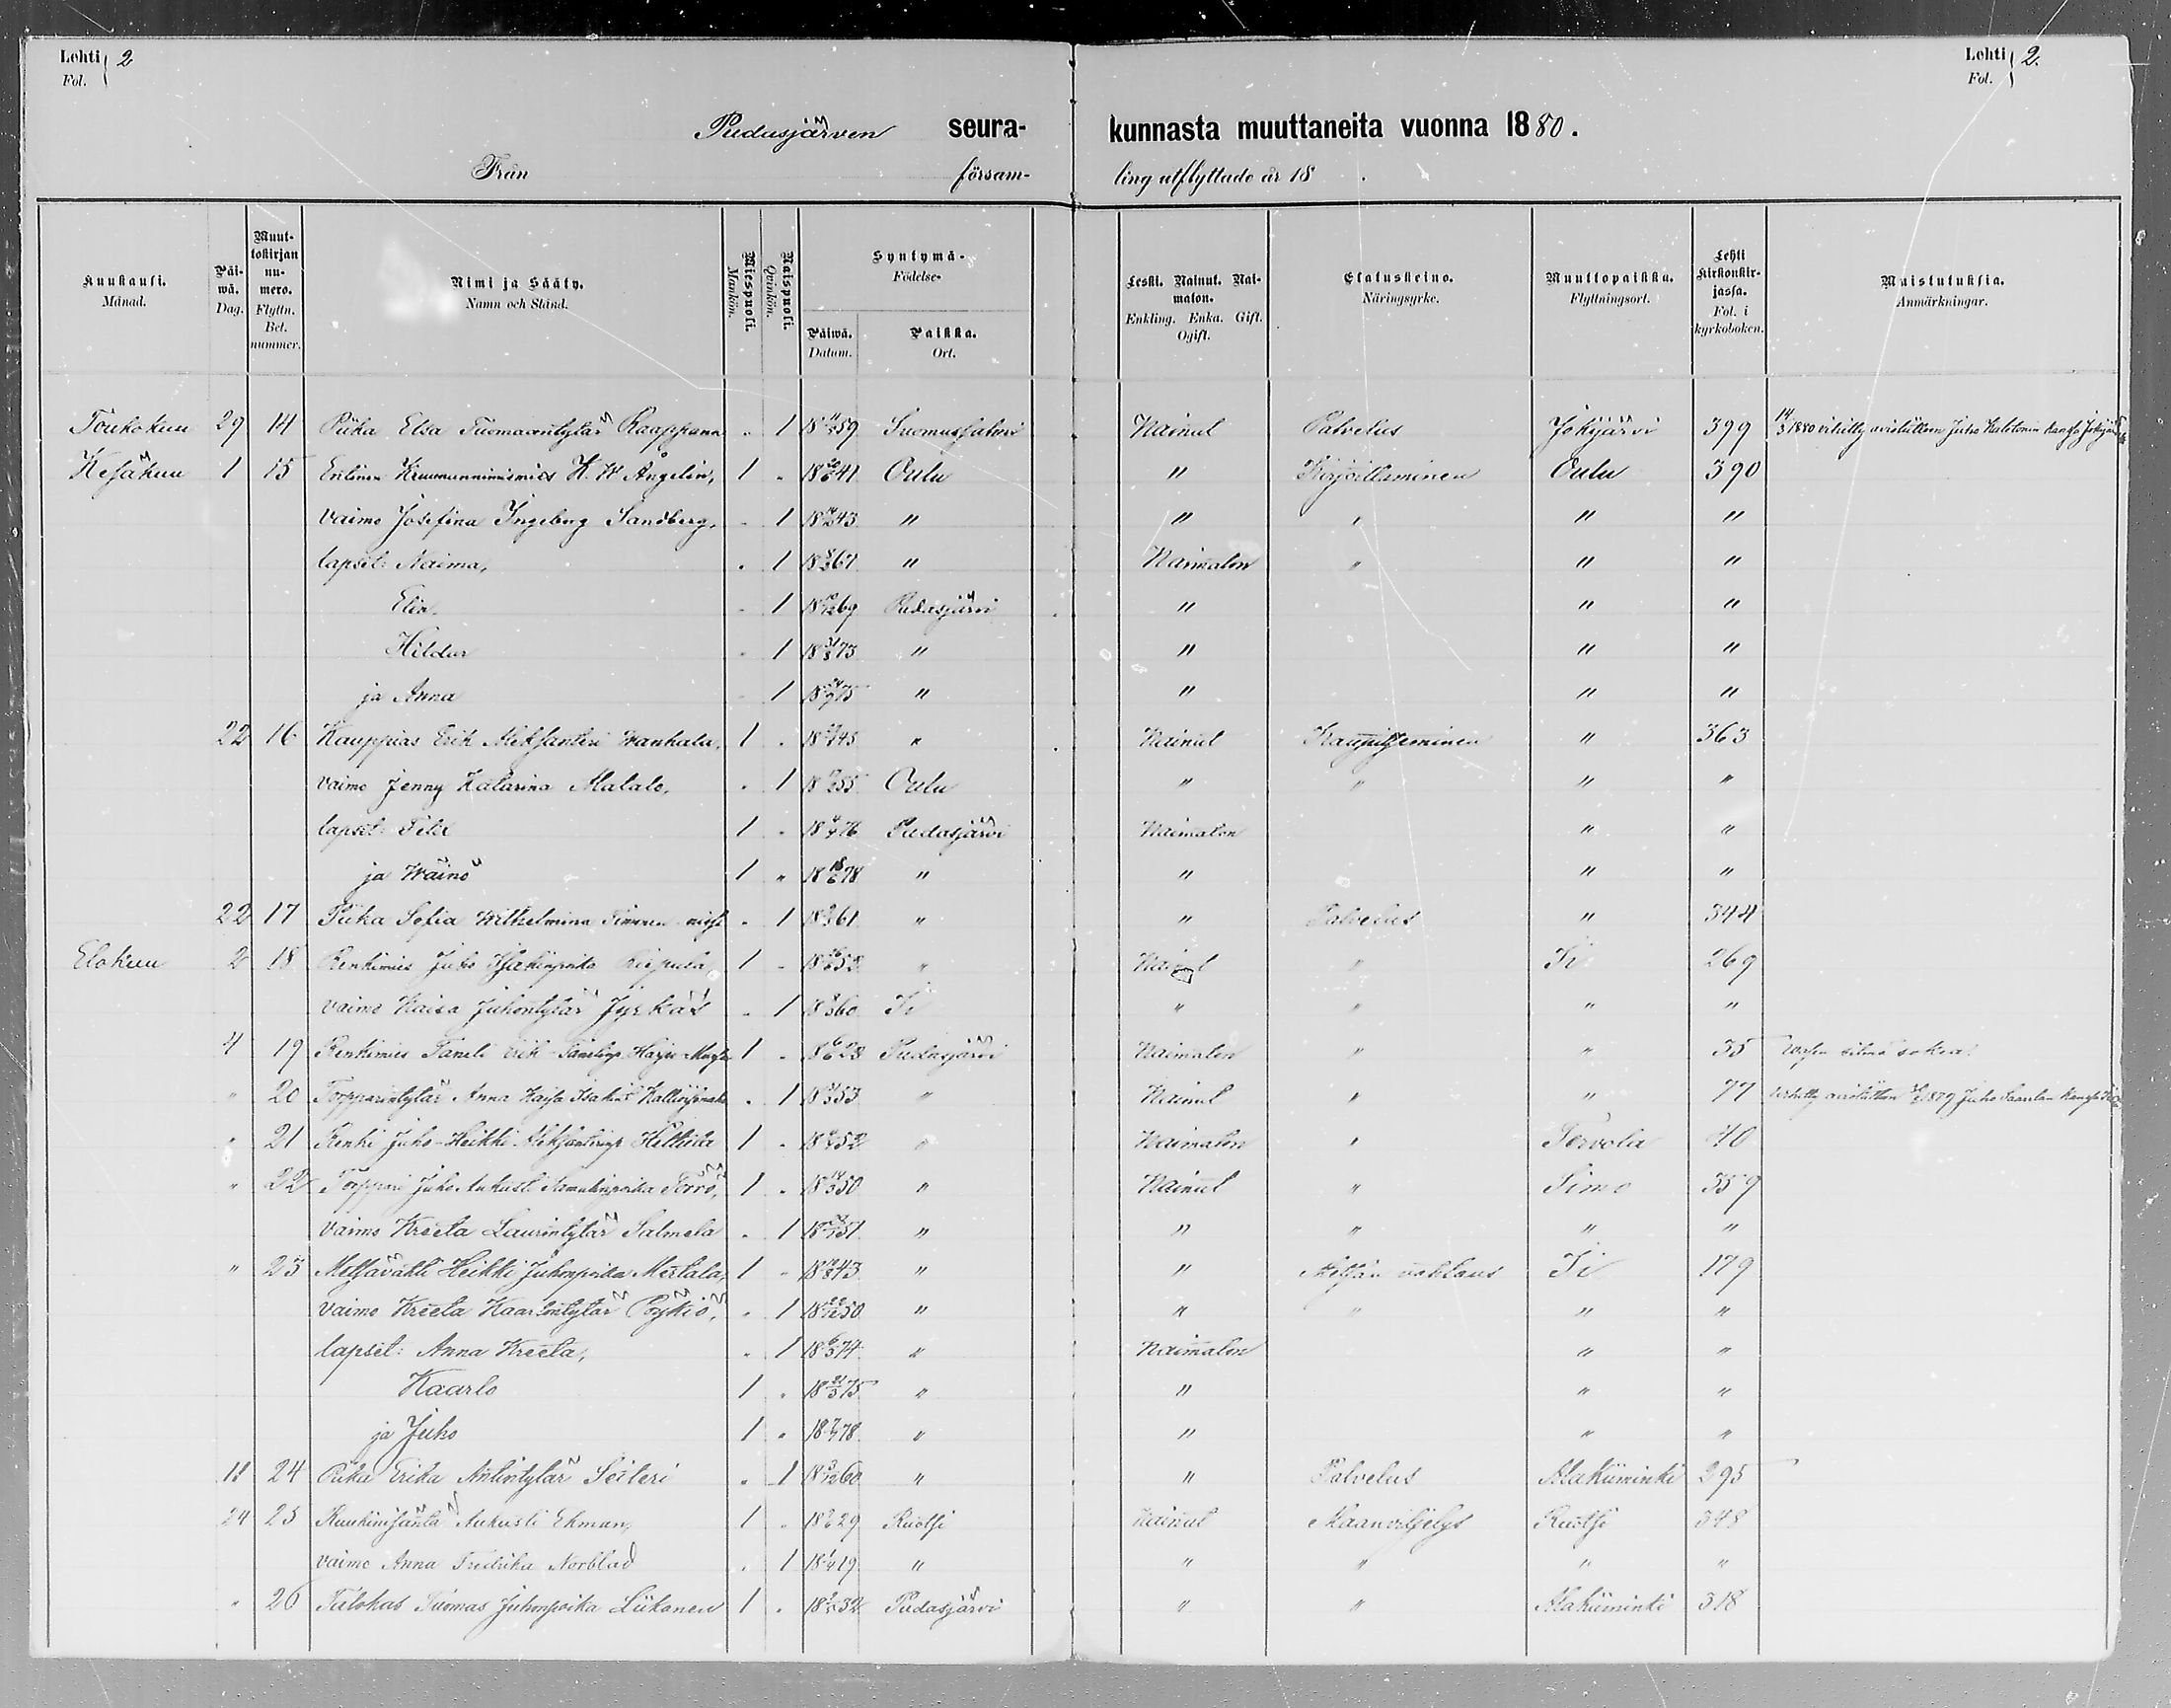 Lehti 2
Fol.
Lehti 2.
Fol.
Pudasjärven seura- kunnasta muuttaneita vuonna 1880.
Från församling utflyttade år 18 .
Kuukausi. Månad. | Päiwä. Dag. | Muuttokirjan numero. Flyttn. Bet. nummer. | Nimi ja Sääty. Namn och Stånd. | Miespuoli. Mankön. | Naispuoli. Qvinkön. | Syntymä- Födelse- Päiwä. Datum. | Paikka. Ort. | Leski. Nainut. Naimaton. Enkling. Enka. Gift. Ogift. | Elatuskeino. Näringsyrke. | Muuttopaikka. Flyttningsort. | Lehti kirkonkirjassa. Fol. i kyrkoboken. | Muistutuksia. Anmärkningar.
Toukokuu 29 14 Piika Elsa Tuomaantytär Kaappana „ 1 59 Suomussalmi Nainut Palvelus Jokijärvi 399 14/3 1880 vihitty avioliittoon Juho
Kesäkuu 1 15 Entinen Kruununnimismies K. W. Ångelin, 1 „ 41 Oulu „ Kirjoittaminen Oulu 390
vaimo Josefina Ingeborg Sandberg, „ 1 43 „ „ „ „ „
lapset: Naima, „ 1 67 „ Naimaton „ „ „
Elin „ 1 69 Pudasjärvi „ „ „
Hildur „ 1 73 „ „ „ „
ja Anna „ 1 75 „ „ „ „
22 16 Kauppias Erik Aleksanteri Wanhala, 1 „ 45 „ Nainut Kauppitseminen „ 363
vaimo Jenny Katarina Matala, „ 1 55 Oulu „ „ „ „
lapset: 1 „ 76 Pudasjärvi Naimaton „ „
ja Wäinö 1 „ 78 „ „ „ „
22 17 Piika Sofia Wilhelmina „ 1 61 „ „ Palvelus „ 344
Elokuu 2 18 Renkimies Juho Isakinpoika 1 „ 52 „ Nainut „ Ii 269
vaimo Kaisa Juhontytär Jyrkäs „ 1 60 Ii „ „ „ „
4 19 Renkimies Taneli Erik 1 „ 28 Pudasjärvi Naimaton „ „ 35 silmä sokea.
„ 20 Torpparintytär Anna Kaisa „ 1 53 „ Nainut „ „ 77 Vihitty avioliittoon 1879 Juho
„ 21 Renki Juho-Heikki 1 „ 52 „ Naimaton „ Tervola 40
„ 22 Torppari Juho Aukusti Samulinpoika Törrö, 1 „ 50 „ Nainut „ Simo 359
vaimo Kreeta Laurintytär Salmela „ 1 51 „ „ „ „ „
„ 23 Metsävahti Heikki Juhonpoika Mertala, 1 „ 43 „ „ Metsän vahtaus Ii 179
vaimo Kreeta Kaarlontytär Pöykiö, „ 1 50 „ „ „ „ „
lapset: Anna Kreeta, „ 1 74 „ Naimaton „ „
Kaarlo 1 „ 75 „ „ „ „
ja Juho 1 „ 78 „ „ „ „
11 24 Piika Erika Antintytär Seileri „ 1 60 „ „ Palvelus Alakiiminki 295
24 25 Ruukinisäntä Aukusti Ekman, 1 „ 29 Ruotsi Nainut Maanviljelys Ruotsi 348
vaimo Anna Fredrika Norblad „ 1 19 „ „ „ „ „
„ 26 Tulokas Tuomas Juhonpoika Liikanen 1 „ 32 Pudasjärvi „ „ Alakiiminki 318